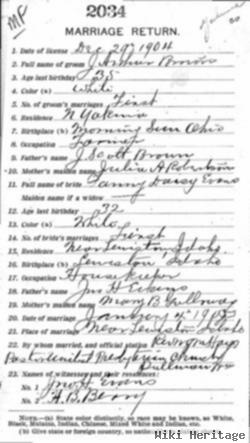 MF
2034
MARRIAGE RETURN.
1. Date of license Dec 29th 1904
2. Full name of groom Brown
3. Age last birthday
4. Color (a) White
5. No. of groom's marriages First
6. Residence N Yakima
7. Birthplace (b) Morning Sun Ohio
8. Occupation Farmer
9. Father's name J Scott Brown
10. Mother's maiden name Julia A Robertson
11. Full name of bride Fanny Daisy Evans
Maiden name if a widow
12. Age last birthday 32
13. Color (a) White
14. No. of bride's marriages First
15. Residence Near Lewiston Idaho
16. Birthplace (b) Lewiston, Idaho
17. Occupation Housekeeper
18. Father's name Jno H Evans
19. Mother's maiden name Mary B Gulloway
20. Date of marriage January 4" 1905
21. Place of marriage Near Lewiston Idaho
22. By whom married, and official station
Pastor United Presbyterian Church
Pullman
23. Names of witnesses and their residences:
No. 1 Jno H. Evans
No. 2 A.B. Berry
NOTE.—(a) State color distinctly, so race may be known, as White,
Black, Mulatto, Indian, Chinese, Mixed White and Indian, etc.
(b) Give state or foreign country, so
Miki Heritage